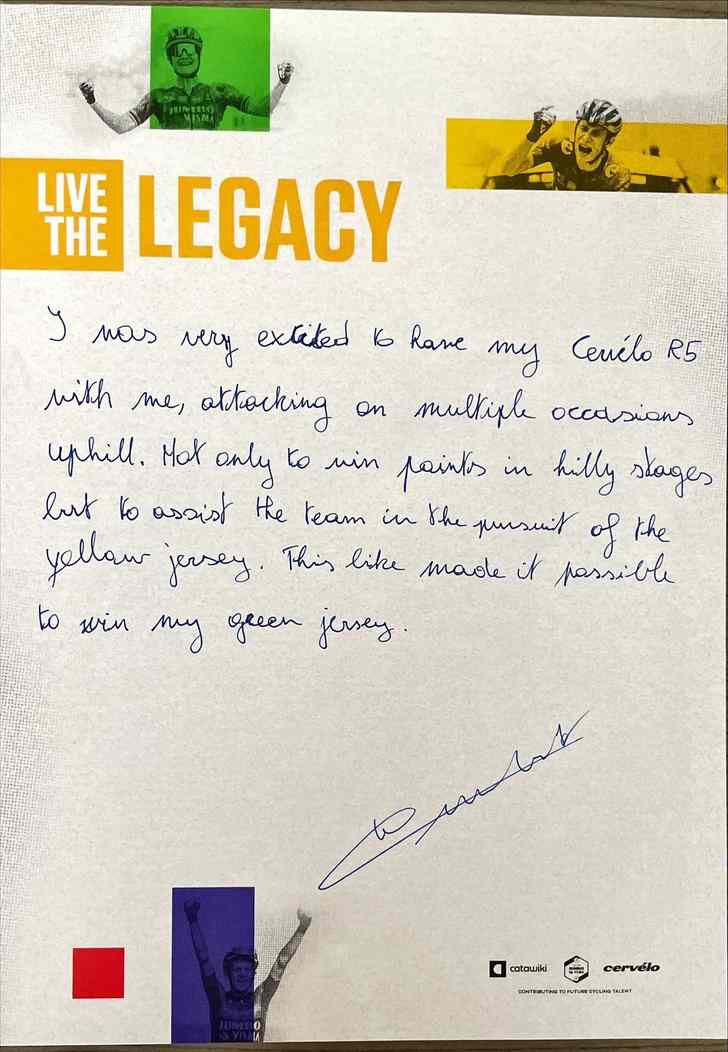 JUMBO
VISMA
LIVE
THE
LEGACY
I was very excited to have my Cervélo R5
with me, attacking on multiple occasions
uphill. Not only to win points in hilly stages
but to assist the team in the pursuit of the
yellow jersey. This bike made it possible
to win my green jersey.
JUMBO
VISMA
catawiki
cervélo
CONTRIBUTING TO FUTURE CYCLING TALENT